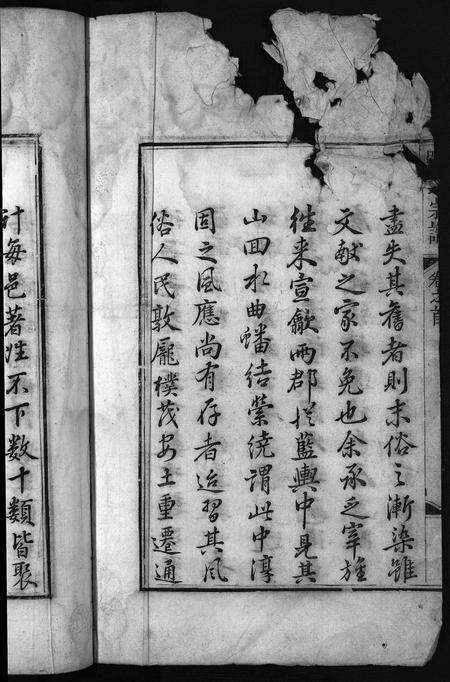 宗譜 卷之首
盡失其舊者則末俗之漸染雖
文献之家不免也余承乏宰旌
徃来宣歙兩郡於藍輿中見其
山回水曲蟠結縈繞謂此中淳
固之風應尚有存者迨習其風
俗人民敦龐樸茂安土重遷通
计每邑著姓不下数十類皆聚